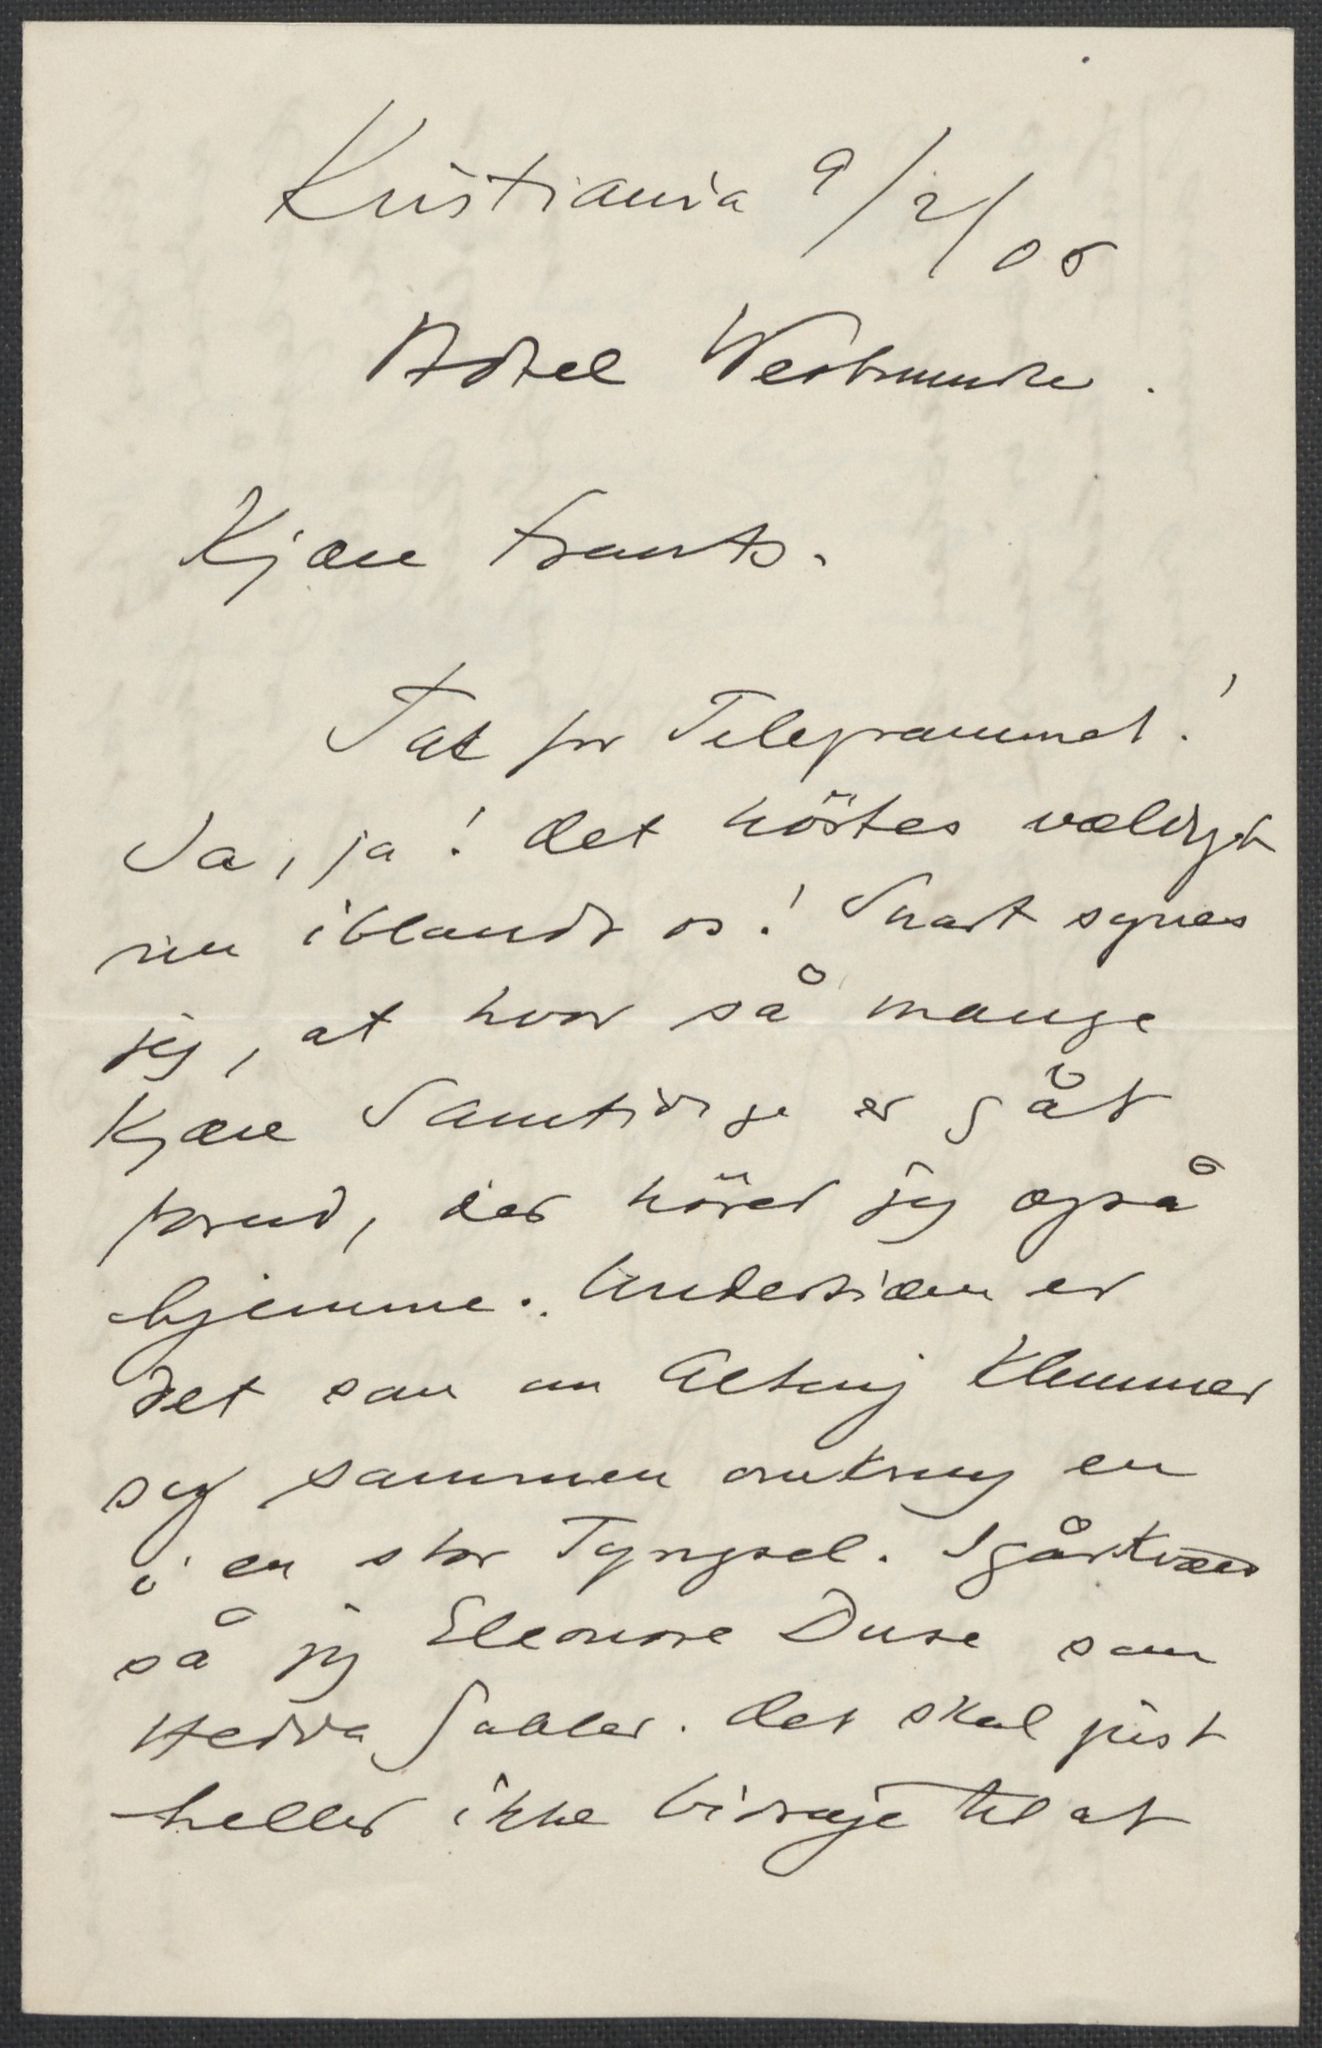 Kristiania 9/2/06
Hotel Westminster.
Kjære Frants.
Tak for Telegrammet!
Ja, ja! det höstes vældigt
nu iblandt os! Snart synes
jeg, at hvor så mange
kjære Samtidige er gåt
forud, der hörer jeg også
hjemme. Undertiden er
det som om Alting klemmer
sig sammen omkring en
i en stor Tyngsel. Igårkvæld
så jeg Eleonore Duse som
Hedda Gabler. Det skal just
heller ikke bidrage til at